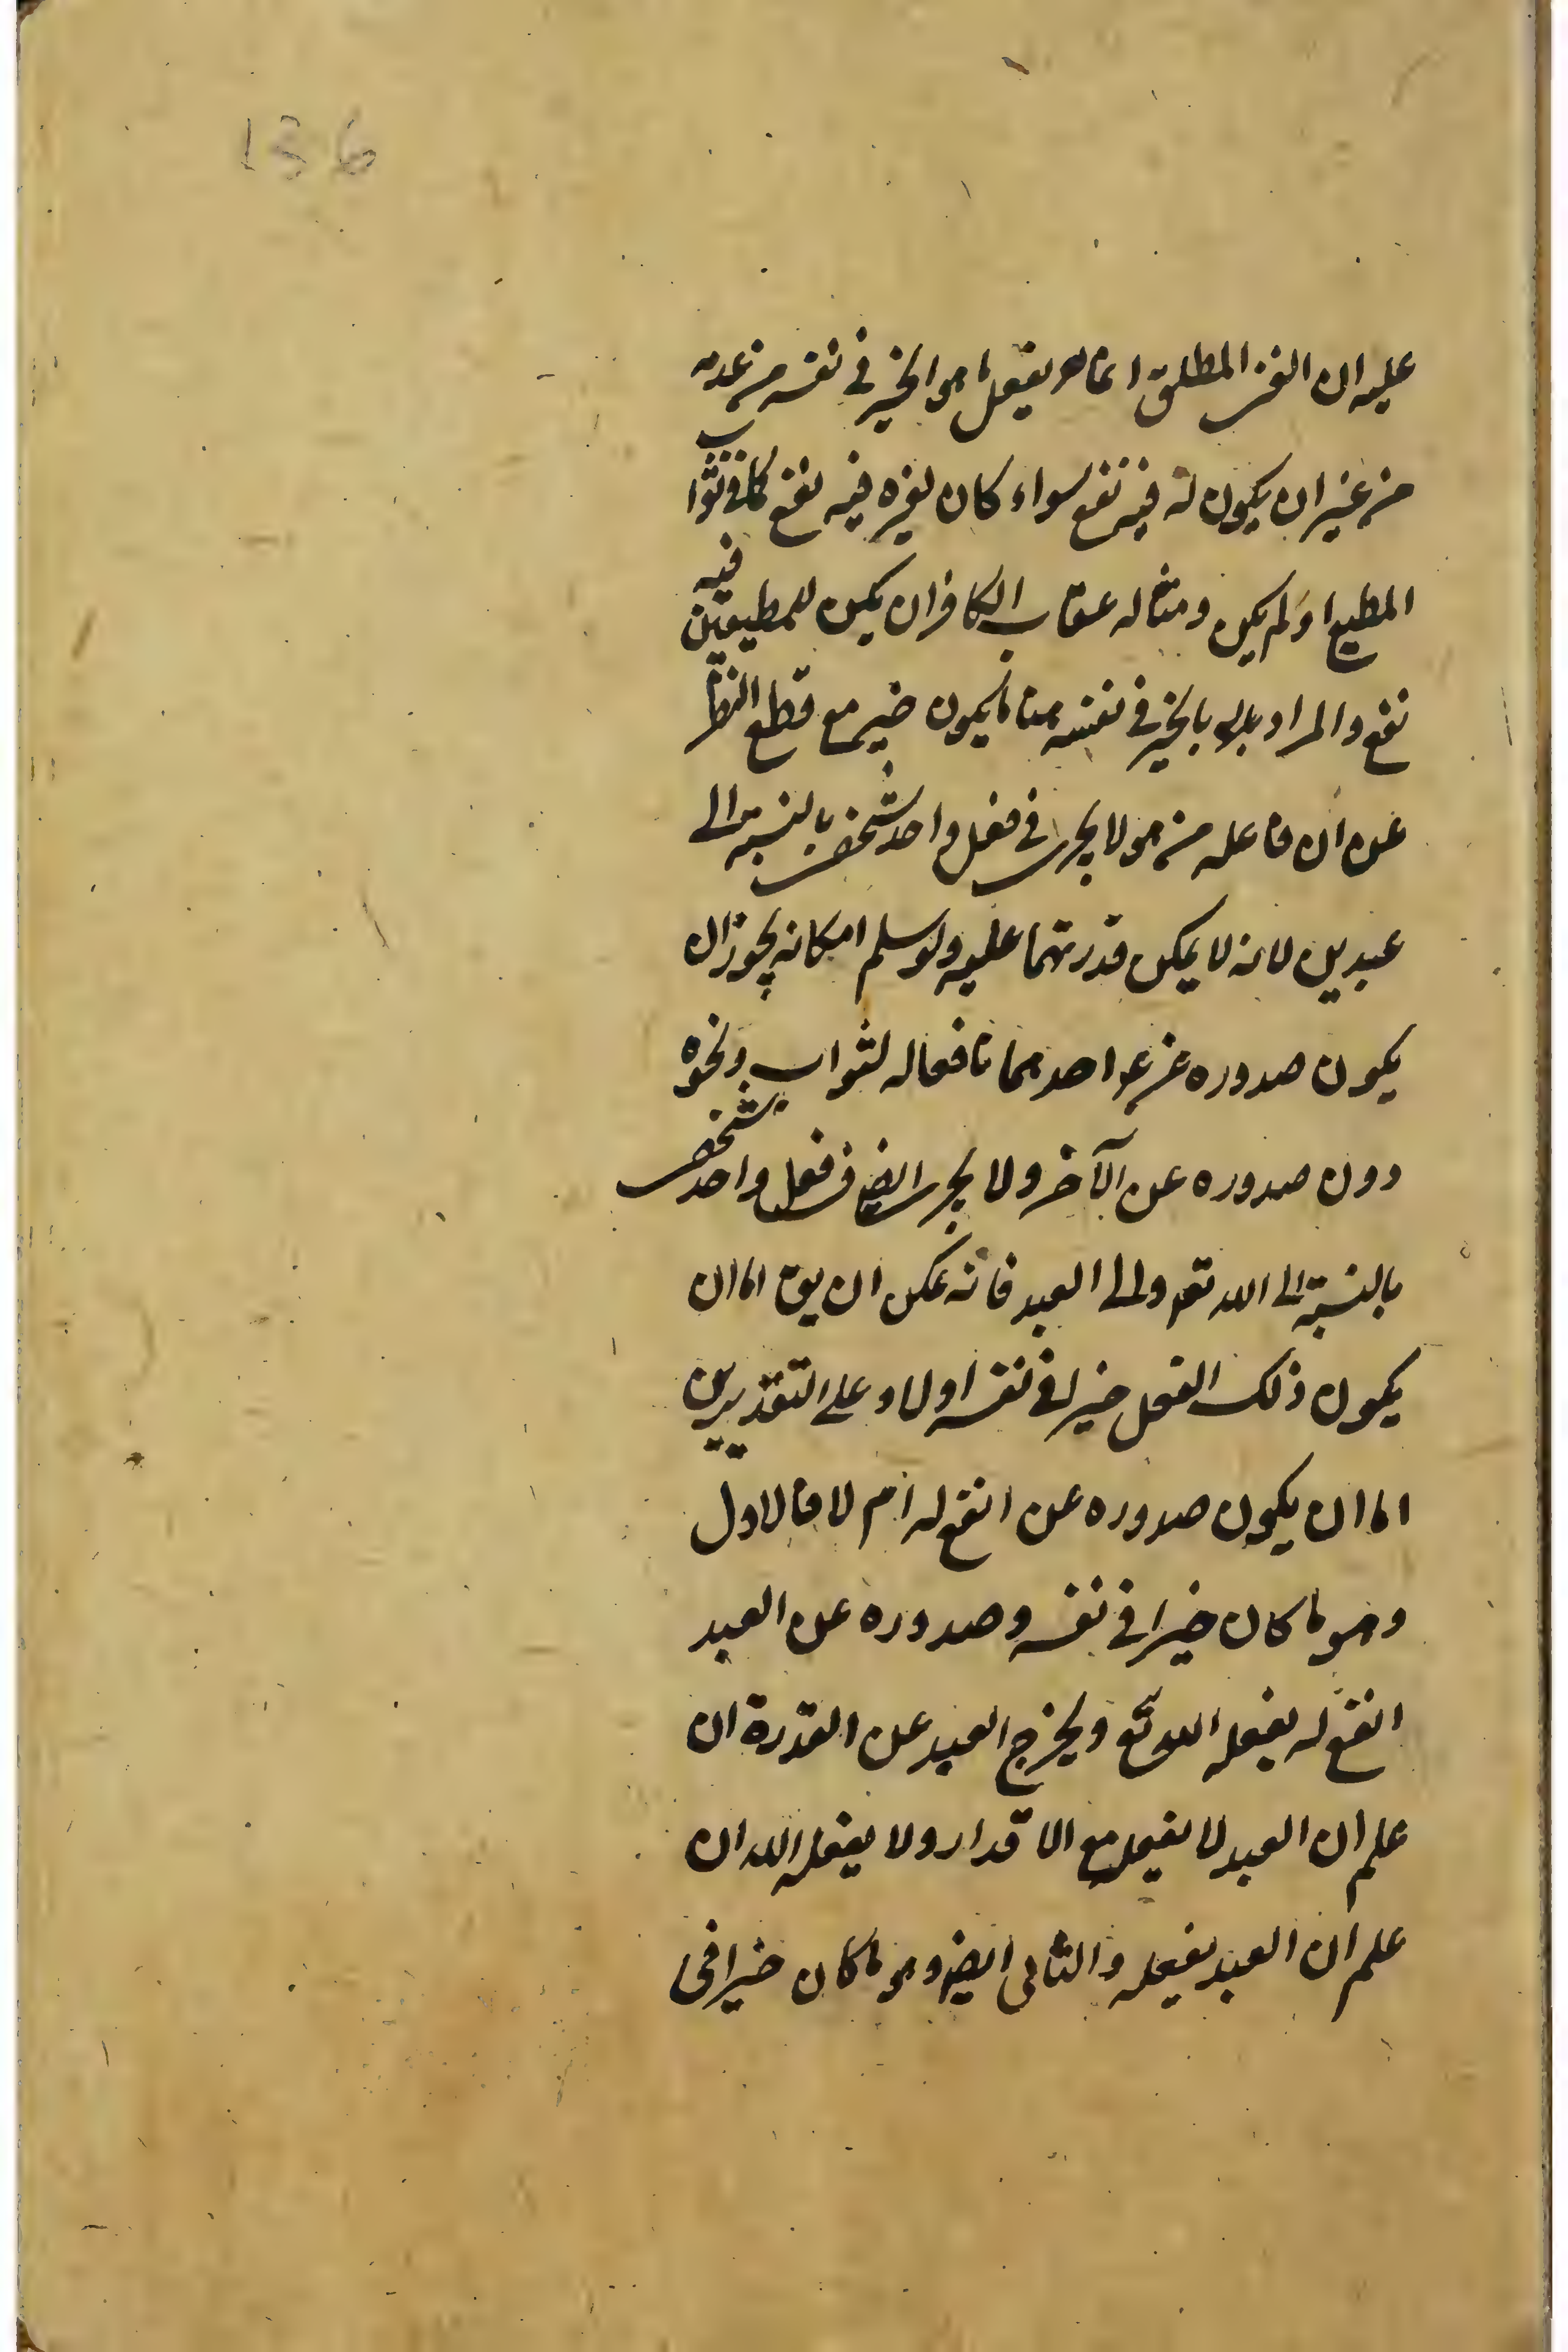 136
عليه ان الغنى المطلق انما يفعل ما هو الخير في نفسه من عدمه
من غير ان يكون له فيه نفع سواء كان لغيره فيه نفع كما في ثواب
المطيع او لم يكن ومثاله عقاب الكافر ان يكن للمطيعين فيه
نفع والمراد بالخير في نفسه ما يكون خيرا مع قطع النظر
عن ان فاعله من هو لا يجرى في فعل واحد شخصي بالنسبة الى
عبدين لانه لا يمكن قدرتهما عليه ولو سلم امكانه يجوز ان
يكون صدوره عن احدهما نافعا له لثواب ونحوه
دون صدوره عن الآخر ولا يجرى ايضا في فعل واحد شخصي
بالنسبة الى الله تعه والى العبد فانه يمكن ان يق اما ان
يكون ذلك الفعل خيرا في نفسه او لا وعلى التقديرين
اما ان يكون صدوره عن انفع له ام لا فالاول
وهو ما كان خيرا في نفسه وصدوره عن العبد
انفع له يفعله الله تع ويخرج العبد عن القدرة ان
علم ان العبد لا يفعل مع الاقدار ولا يفعله الله ان
علم ان العبد يفعله والثانى ايضا وهو ما كان خيرا فى